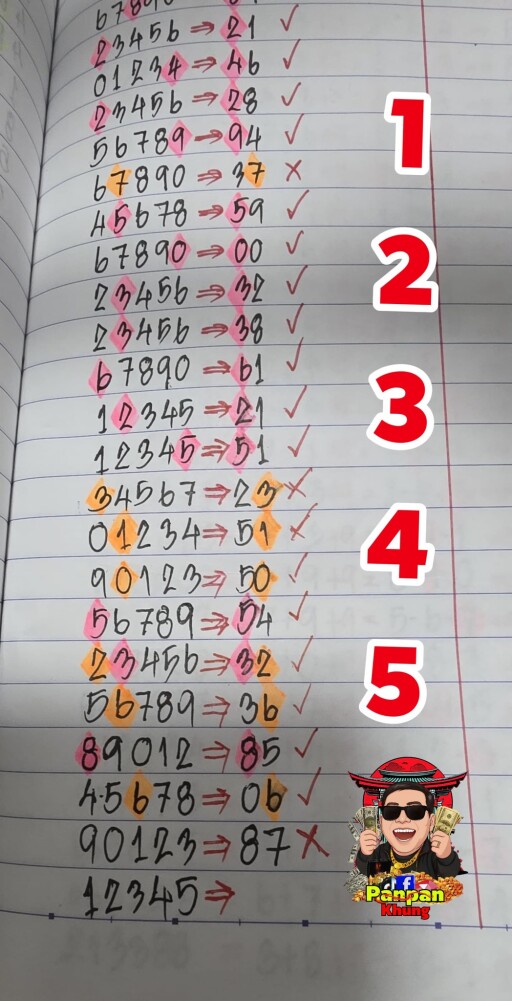 23456 ⇒ 21 ✓
01234 ⇒ 46 ✓
23456 ⇒ 28 ✓
56789 ⇒ 94 ✓
67890 ⇒ 37 ×
45678 ⇒ 59 ✓
67890 ⇒ 00 ✓
23456 ⇒ 32 ✓
23456 ⇒ 38 ✓
67890 ⇒ 61 ✓
12345 ⇒ 21 ✓
12345 ⇒ 51 ✓
34567 ⇒ 23 ×
01234 ⇒ 51 ×
90123 ⇒ 50 ✓
56789 ⇒ 54 ✓
23456 ⇒ 32 ✓
56789 ⇒ 36 ✓
89012 ⇒ 85 ✓
45678 ⇒ 06 ✓
90123 ⇒ 87 ×
12345 ⇒
1
2
3
4
5
Panpan
Khung